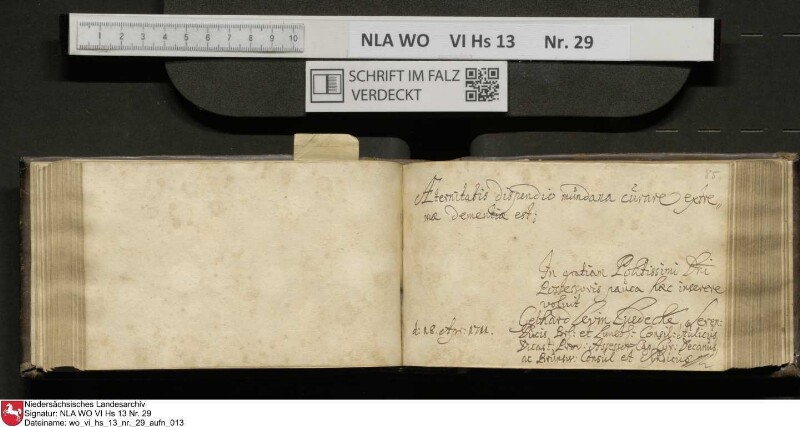 1 2 3 4 5 6 7 8 9 10
NLA WO VI Hs 13 Nr. 29
SCHRIFT IM FALZ
VERDECKT
85.
Æternitatis dispendio mundana curare extre,,
mæ dementiæ est;
In gratiam Politissimi Dni
Possessoris pauca hæc inserere
voluit
d. 18. Apr. 1711.
Gebhard Levin Lüdecke, Seren:
Ducis Br: et Luneb: Consil: Aulicus
Dicast: Prov: Assessor Can: Cyr: Decanus
ac Brunsw: Consul et
Niedersächsisches Landesarchiv
Signatur: NLA WO VI Hs 13 Nr. 29
Dateiname: wo_vi_hs_13_nr._29_aufn_013